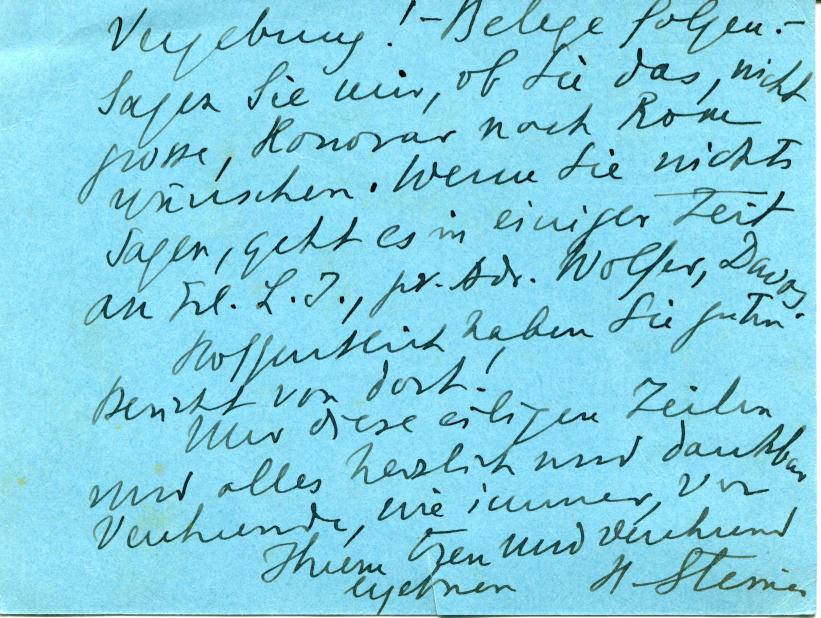 Vergebung! – Belege folgen. –
Sagen Sie mir, ob Sie das, nicht
grosse, Honorar nach Rom
wünschen. Wenn Sie nichts
sagen, geht es in einiger Zeit
an Frl. L. J., pr. Adr. Wolfer, Davos.
Hoffentlich haben Sie guten
Bericht von dort!
Nur diese eiligen Zeilen
und alles herzlich und dankbar
Verehrende, wie immer, von
Ihrem treu und verehrend
ergebnen H. Steiner